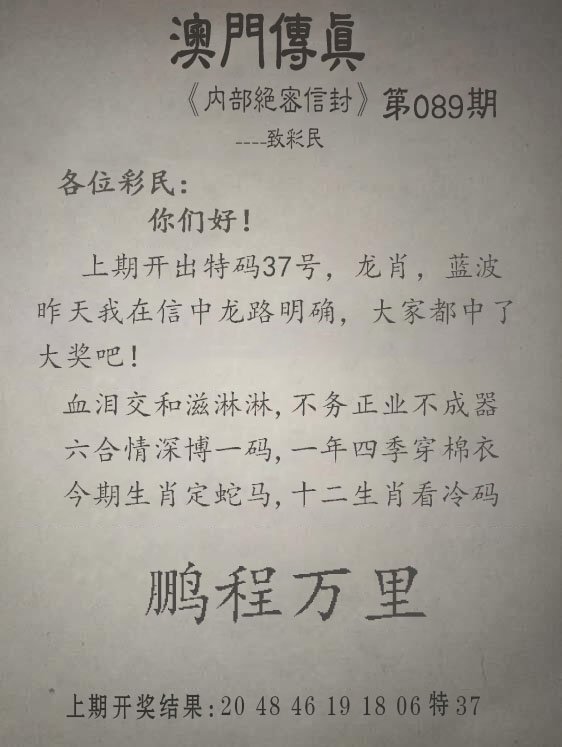 澳門傳眞
《内部絕密信封》第089期
----致彩民
各位彩民：
你们好！
上期开出特码37号，龙肖，蓝波
昨天我在信中龙路明确，大家都中了
大奖吧！
血泪交和滋淋淋,不务正业不成器
六合情深博一码,一年四季穿棉衣
今期生肖定蛇马,十二生肖看冷码
鹏程万里
上期开奖结果:20 48 46 19 18 06特37